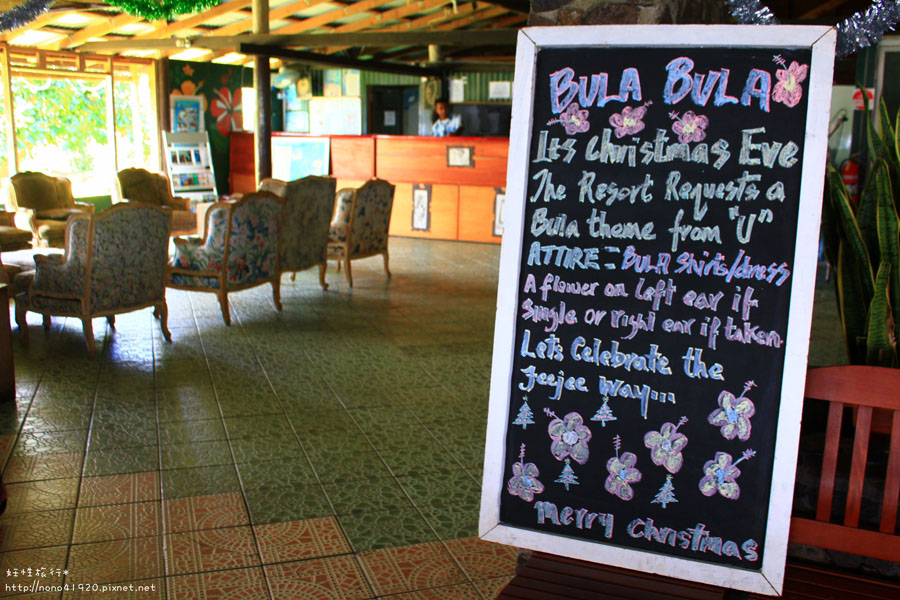 BULA BULA
Its Christmas Eve
The Resort Requests a
Bula theme from "U"
ATTIRE = BULA Shirts/dress
A flower on left ear if
Single or right ear if taken.
Lets Celebrate the
Jeejee way...
Merry Christmas
妊性旅行*
http://nono41920.pixnet.net